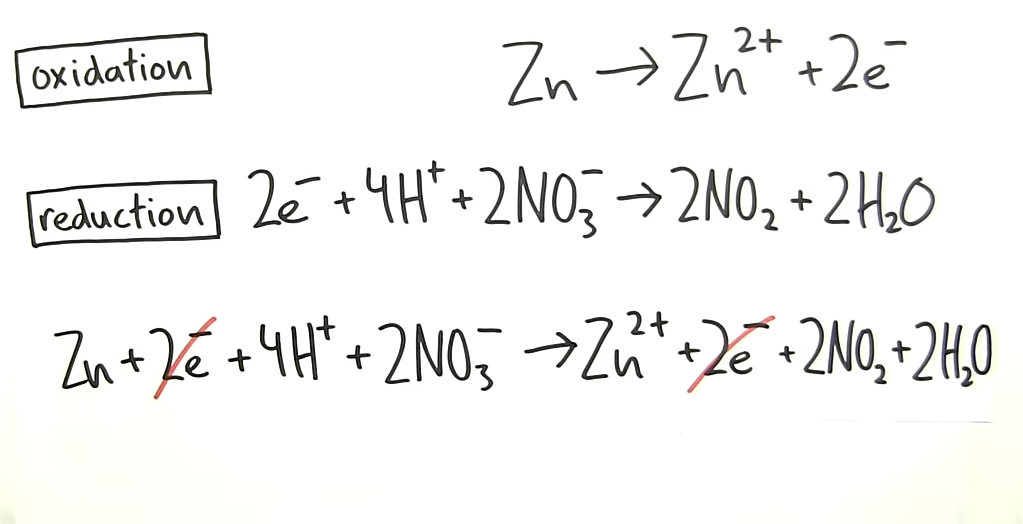 oxidation Zn → Zn²⁺ + 2e⁻
reduction 2e⁻ + 4H⁺ + 2NO₃⁻ → 2NO₂ + 2H₂O
Zn + 2e⁻ + 4H⁺ + 2NO₃⁻ → Zn²⁺ + 2e⁻ + 2NO₂ + 2H₂O